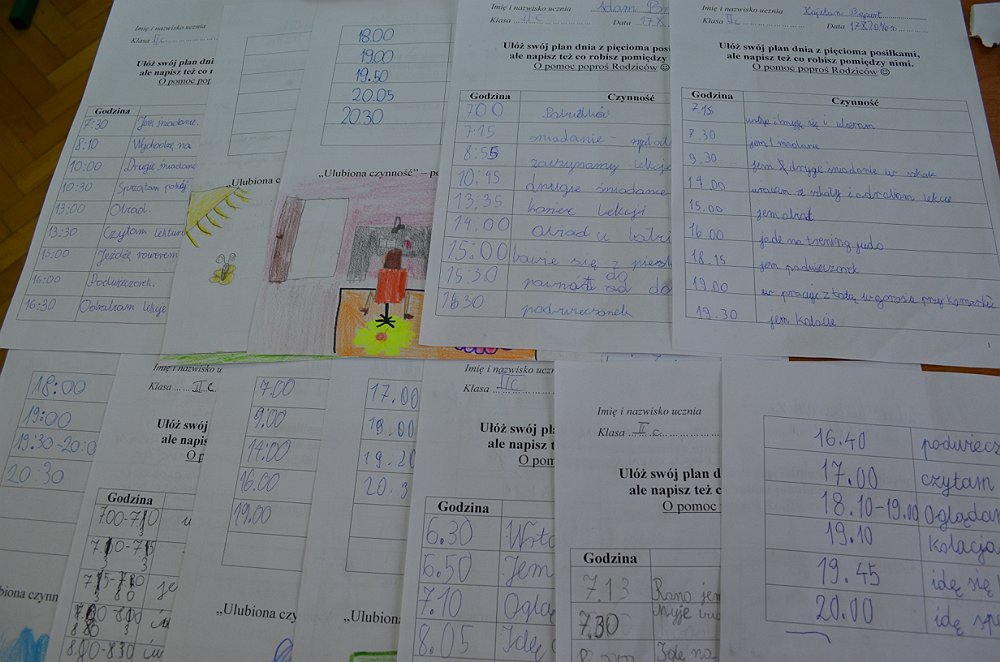 Imię i nazwisko ucznia
Klasa IIc
Ułóż swój plan dni
ale napisz też co r
O pomoc pop
Godzina
7:30 Jem śniadanie.
8:10 Wychodzę na
10:00 Drugie śniadanie
10:30 Sprzątam pokój
13:00 Obiad.
13:30 Czytam lekturę
15:00 Jeżdżę rowerem
16:00 Podwieczorek.
16:30 Odrabiam lekcje
„Ulubiona c
18.00
19.00
19.50
20.05
20.30
„Ulubiona czynność” – po
Imię i nazwisko ucznia Adam
Klasa IIc Data 17.X.
Ułóż swój plan dnia z pięcioma posi
ale napisz też co robisz pomiędzy
O pomoc poproś Rodziców ☺
Godzina Czynność
7:00 Pobudka
7:15 śniadanie
8:55 zaczynamy lekcje
10:45 drugie śniadanie
13:35 koniec lekcji
14:00 obiad u babci
15:00 bawię się z
15:30
16:30 podwieczorek
Imię i nazwisko ucznia Kajetan
Klasa IIc Data
Ułóż swój plan dnia z pięcioma posiłkami,
ale napisz też co robisz pomiędzy nimi.
O pomoc poproś Rodziców ☺
Godzina Czynność
7.15 wstaję i myję się i ubieram
7.30 jem śniadanie
9.30 jem drugie śniadanie w szkole
14.00 wracam ze szkoły i odrabiam lekcje
15.00 jem obiad
16.00 jadę na trening judo
18.15 jem podwieczorek
19.00 w pracuję z tatą w garażu przy
19.30 jem kolację
1
18:00
19:00
19:30-20:0
20:30
biona czynn
Imię i nazwisko u
Klasa IIc
Ułóż swój
ale napis
O p
Godzina
7.00
9.00
14.00
16.00
19.00
„Ulubiona czy
17.00
19.20
20.3
„Ulubiona
Imię i nazwisko uczn
Klasa IIc
Ułóż swój pl
ale napisz
O pom
Godzina
6.30
6.50 Jem
7.10 Oglą
8.05 Idę
Imię i nazwisko ucznia
Klasa II c.
Ułóż swój plan d
ale napisz też c
O pomoc
Godzina
7.13 Rano jem
7.30 Myję
Idę na
16.40 podwiecz
17.00 czytam
18.10-19.00 Oglądan
19.10 kolacja
19.45 idę się
20.00 idę spa